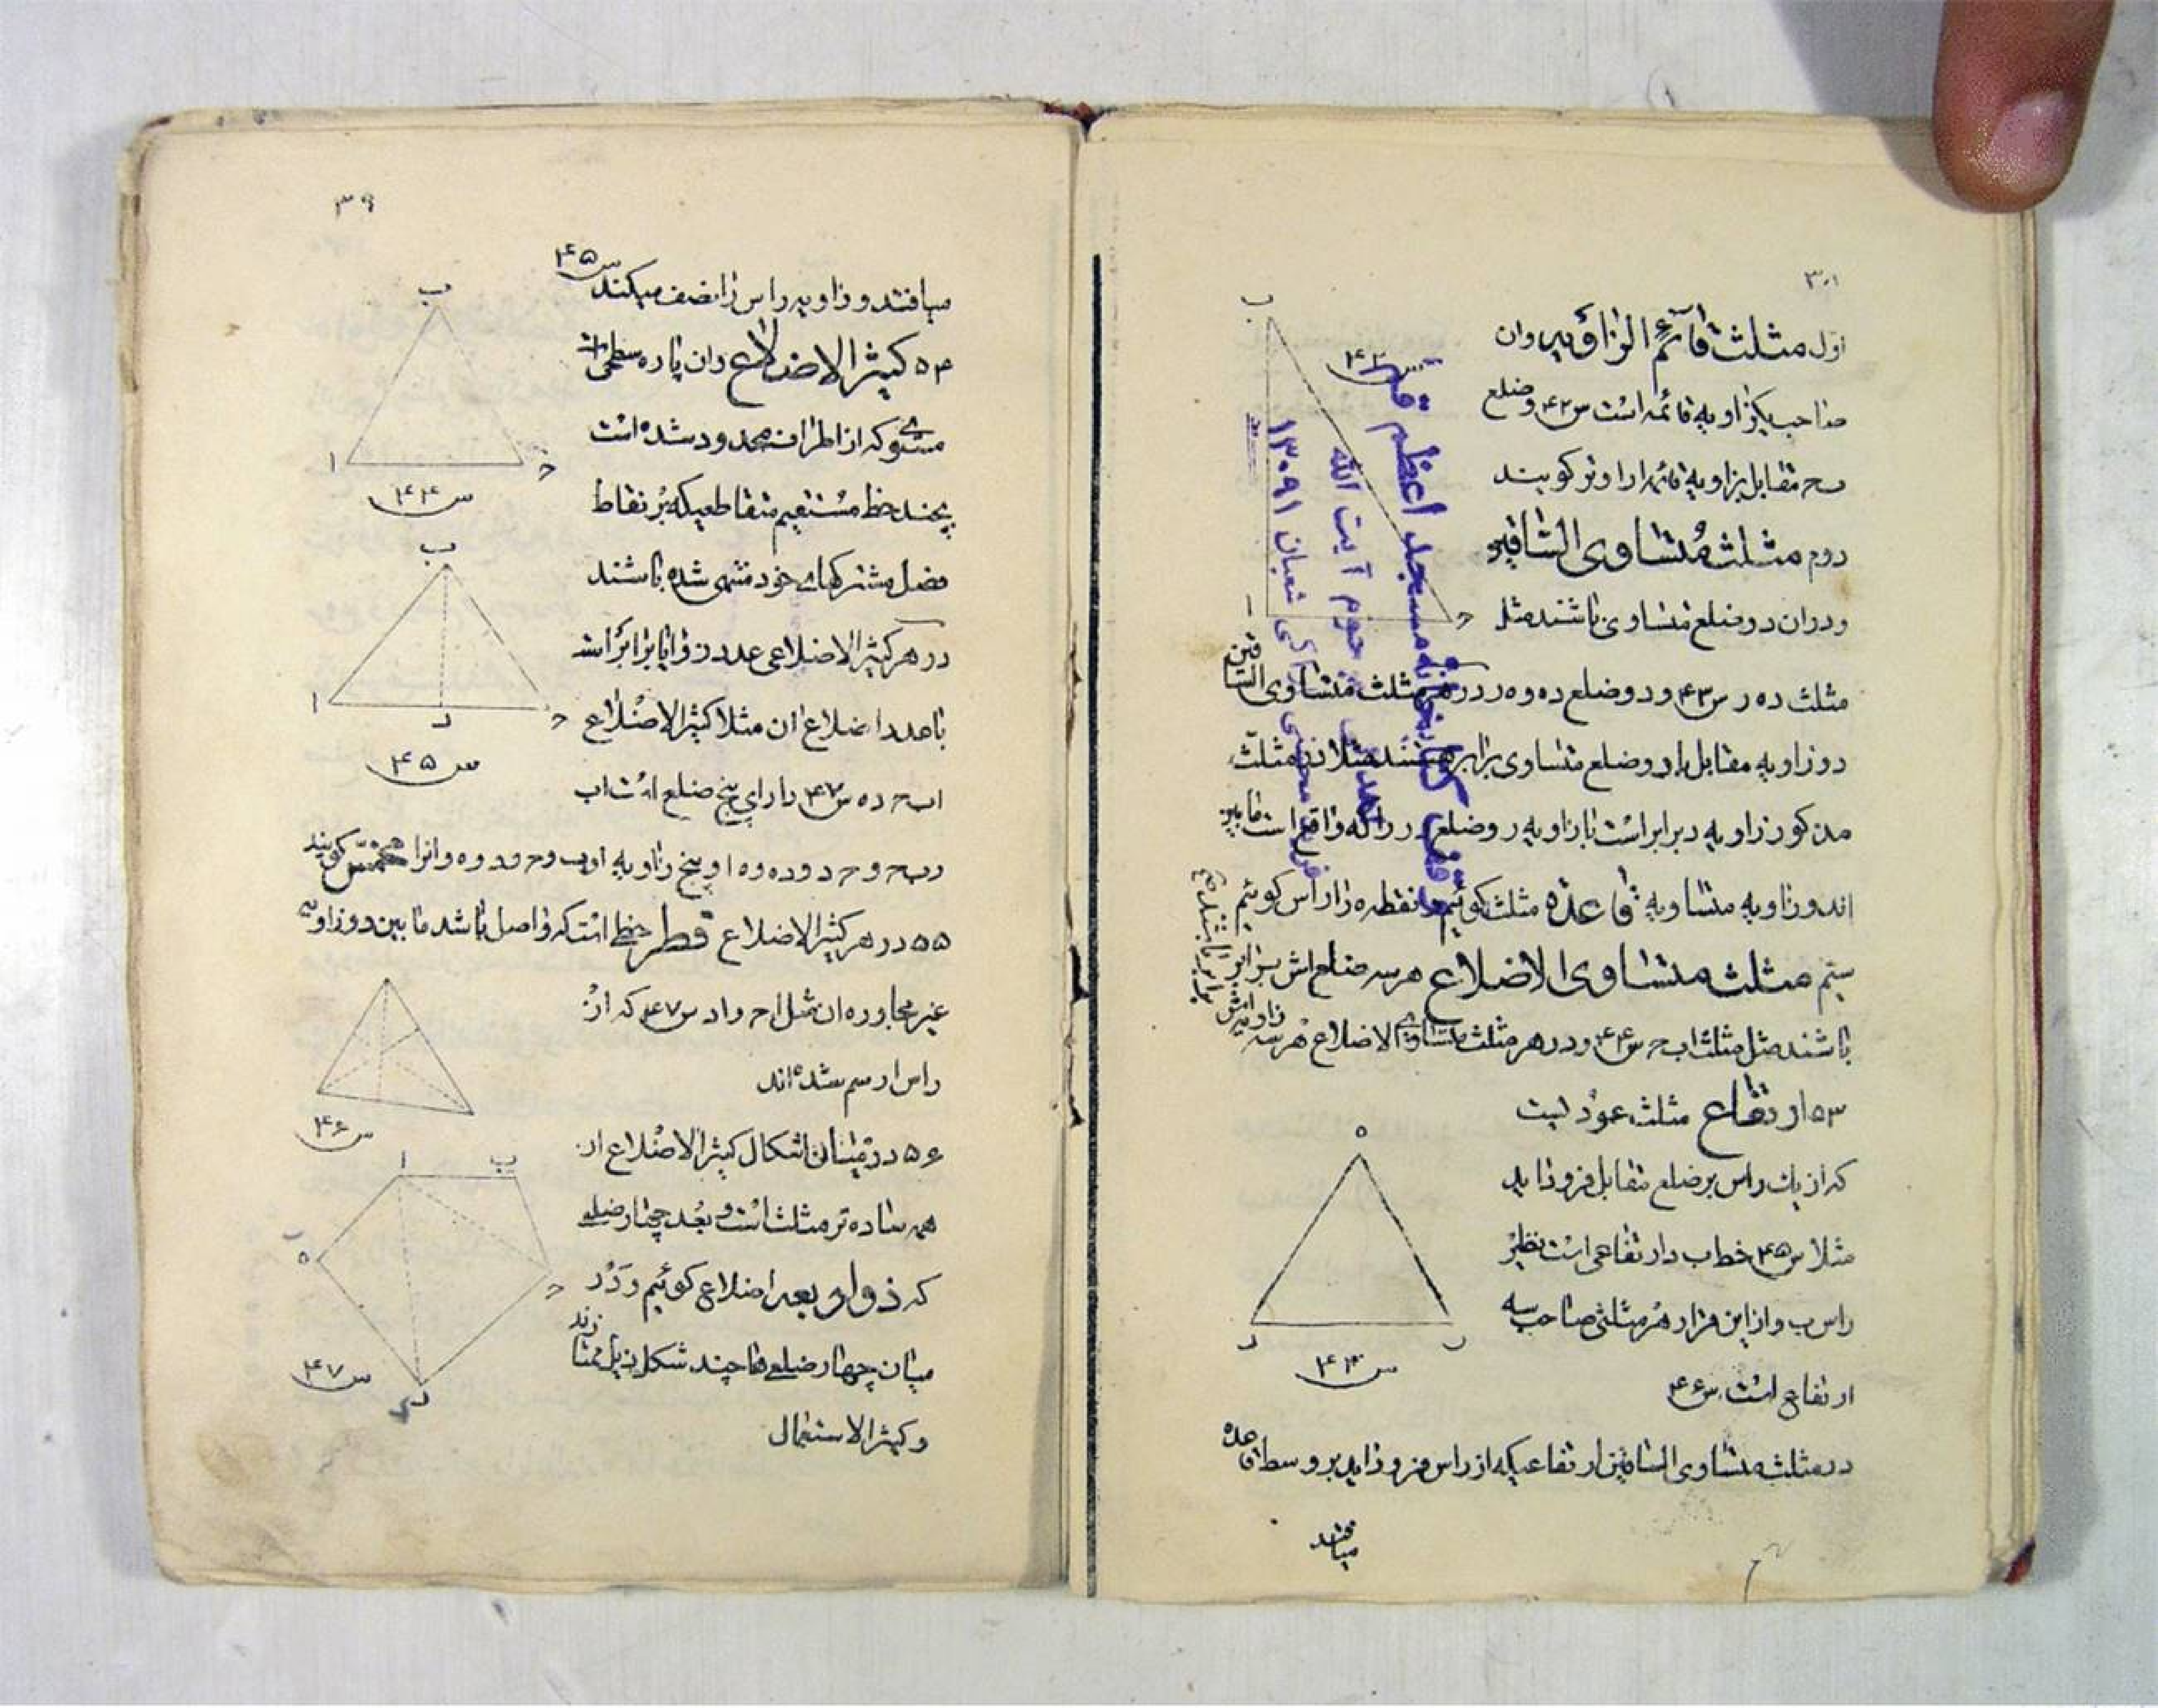 ۳۸
اول مثلث قائم الزاویه وان
صاحب یکزاویه قائمه است س۴۲ و ضلع
ب ح مقابل بزاویه قائمه ا را وتر کویند
دوم مثلث متساوی الساقین
ودران دو ضلع متساوی باشند مثل
مثلث ده ر س۴۳ ودوضلع ده وه ر در هر مثلث متساوی الساقین
دوزاویه مقابل باد وضلع متساوی برابر هستند مثلا در مثلث
مذکور زاویه د برابر است با زاویه ر وضلع در را که واقع است مابین
اندوزاویه متساویه قاعده مثلث کوئیم و نقطه ه را راس کوئیم
سیم مثلث متساوی الاضلاع هر سه ضلع اش برابر
باشند مثل مثلث اب ح س۴۴ ودر هر مثلث متساوی الاضلاع هر سه
زاویه اش
برابر باشند
۵۳ ارتفاع مثلث عمودیست
که از یك راس بر ضلع متقابل فرود اید
مثلا س۴۵ خط ب د ارتفاعی است نظیر
راس ب و از این قرار هر مثلثی صاحب سه
ارتفاع است س۴۶
در مثلث متساوی الساقین ارتفاعیکه از راس فرود اید بر وسط قاعده
میافتد
ب
س۴۲
ا
ح
ه
د
ر
س۴۳
کتابخانه مسجد اعظم قم
آیت الله
شعبان ۱۳۰۹۱
۳۹
میافتد و زاویه راس را نصف میکند س۴۵
۵۴ کثیر الاضلاع وان پاره سطحی است
مستوی که از اطراف محدود شده است
بچند خط مستقیم متقاطعیکه بر نقاط
فصل مشترکهای خود منتهی شده باشند
در هر کثیر الاضلاعی عدد زوایا برابر است
با عدد اضلاع ان مثلا کثیر الاضلاع
اب ح ده س۴۷ دارای پنج ضلع است اب
وب ح وح د وده وه ا و پنج زاویه ا وب وح ود وه وانرا مخمس کویند
۵۵ در هر کثیر الاضلاع قطر خطی است که واصل باشد مابین دو زاویه
غیر مجاوره ان مثل اح واد س۴۷ که از
راس ا رسم شده اند
۵۶ در میان اشکال کثیر الاضلاع از
همه ساده تر مثلث است و بعد چهار ضلعی
که ذو اربعه اضلاع کوئیم و در
میان چهار ضلعی ها چند شکل ذیل ممتازند
و کثیر الاستعمال
ب
ا
ح
س۴۴
ب
ا
د
ح
س۴۵
س۴۶
ا
ب
ه
ح
د
س۴۷